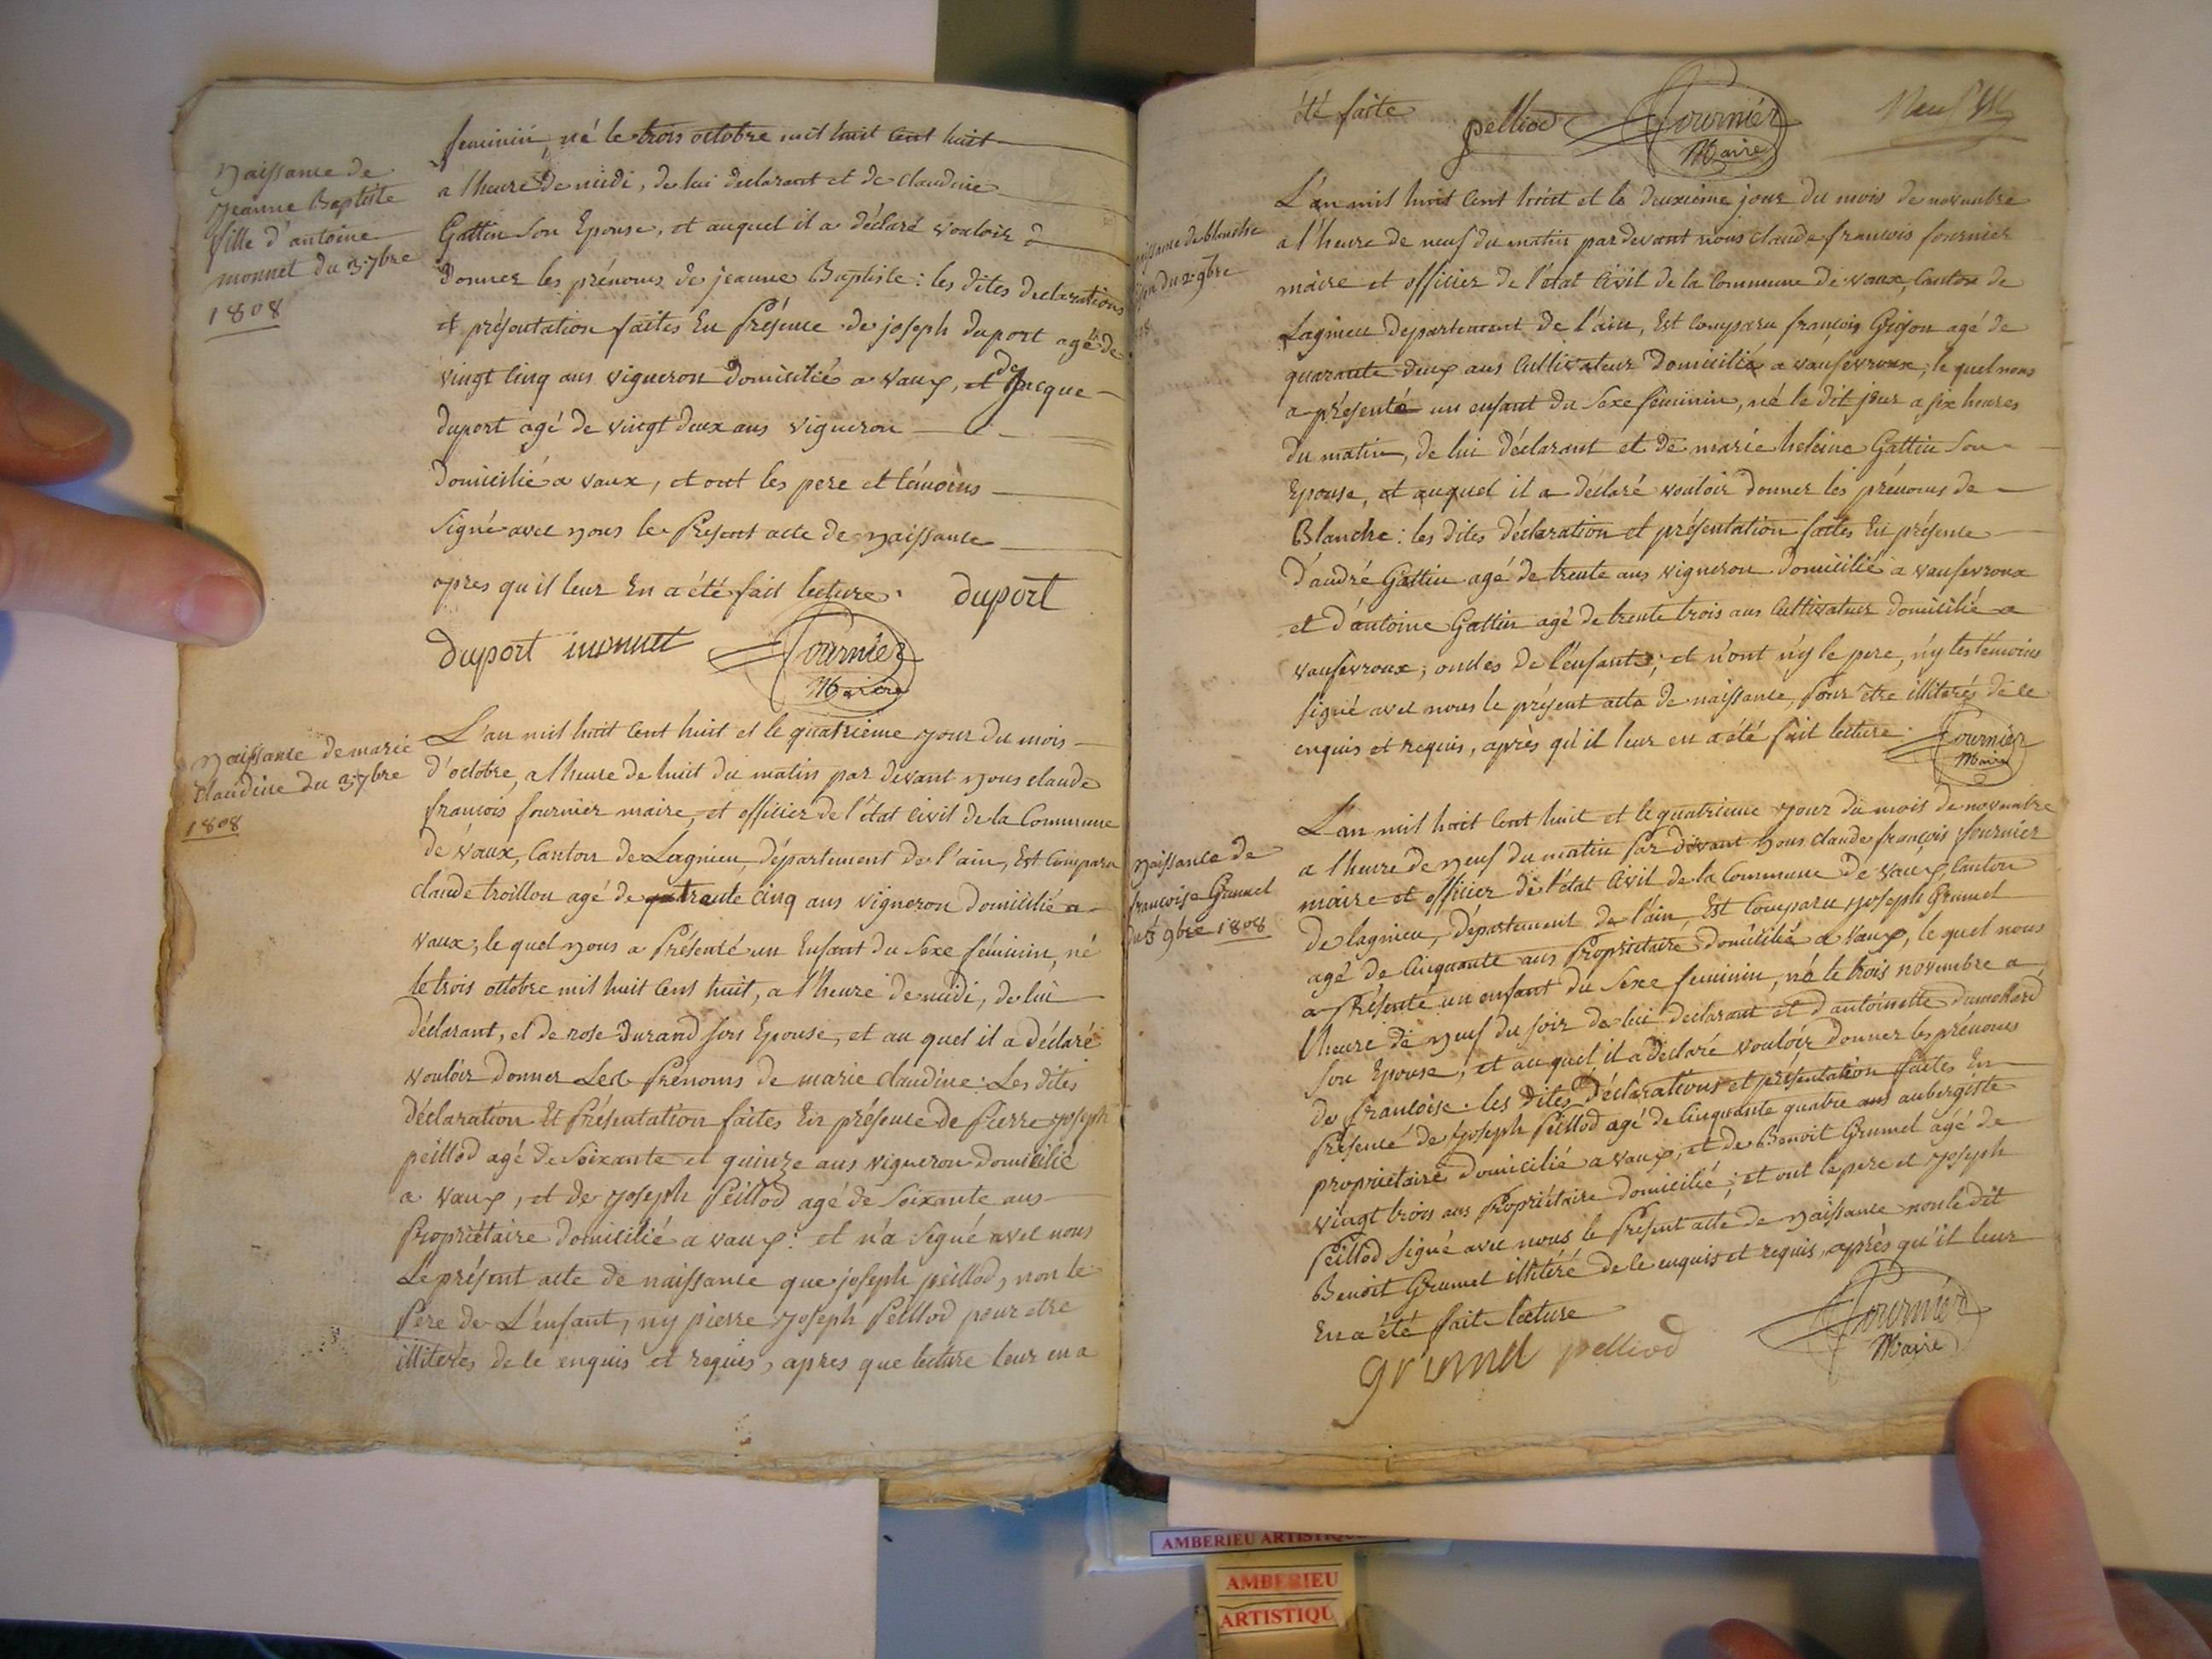 Naissance de
jeanne Baptiste
fille d'antoine
monnet du 3. 7bre
1808
feminin, né le trois octobre mil huit cent huit
a l'heure de midi, de lui declarant et de claudine
Gattin son Epouse, et auquel il a déclaré vouloir
Donner les prénoms de jeanne Baptiste : les dites declarations
et présentation faites En présence de joseph duport agé de
vingt cinq ans vigneron domicilié a vaux, et de jacque
duport agé de vingt deux ans vigneron
Domicilié a vaux, et ont les pere et témoins
Signé avec nous le présent acte de naissance
apres qu'il leur En a été fait lecture. duport
duport monnet fournier
Maire
Naissance de marie
Claudine du 3. 7bre
1808
L'an mil huit cent huit et le quatrieme jour du mois
d'octobre, a l'heure de huit du matin par devant nous claude
francois fournier maire, et officier de l'état civil de la Commune
de vaux, Canton de Lagnieu, département de l'ain, Est comparu
claude troillon agé de trente cinq ans vigneron domicilié a
vaux, le quel nous a Présenté un Enfant du Sexe féminin, né
le trois octobre mil huit cent huit, a l'heure de midi, de lui
déclarant, et de rose Durand son Epouse, et au quel il a déclaré
vouloir donner Les Prénoms de marie claudine. Les dites
Déclaration Et Présentation faites En présence de Pierre joseph
peillod agé de soixante et quinze ans vigneron domicilié
a vaux, et de joseph Peillod agé de soixante ans
Propriétaire domicilié a vaux : et n'a signé avec nous
Le présent acte de naissance que joseph peillod, non le
Pere de L'enfant, ny pierre joseph Peillod pour etre
illiterés de ce enquis et requis, apres que lecture leur en a
été faite pelliod fournier
Maire
Neuf
naissance de blanche
du 2. 9bre
L'an mil huit cent huit et le deuxieme jour du mois de novembre
a l'heure de neuf du matin par devant nous claude francois fournier
maire et officier de l'etat civil de la commune de vaux, canton de
Lagnieu departement de l'ain, Est comparu françois Grison agé de
quarante deux ans cultivateur domicilié a vaufevroux, le quel nous
a présenté un enfant du sexe féminin, né le dit jour a six heures
du matin, de lui déclarant et de marie heleine Gattin son
Epouse, et auquel il a déclaré vouloir donner les prénoms de
Blanche : les dites déclaration et présentation faites En présence
d'andré Gattin agé de trente ans vigneron domicilié a vaufevroux
et d'antoine Gattin agé de trente trois ans cultivateur domicilié a
vaufevroux ; oncles de l'enfant ; et n'ont n'y le pere, n'y les témoins
signé avec nous le présent acte de naissance, pour être illiterés de ce
enquis et requis, après qu'il leur en a été fait lecture. fournier
Maire
naissance de
francoise Grumel
du 3 9bre 1808
L'an mil huit cent huit et le quatrieme jour du mois de novembre
a l'heure de neuf du matin par devant nous claude françois fournier
maire et officier de l'état civil de la commune de vaux, canton
de lagnieu, département de l'ain, Est comparu joseph Grumel
agé de cinquante ans propriétaire domicilié a vaux, le quel nous
a présenté un enfant du sexe feminin, né le trois novembre a
l'heure de neuf du soir de lui declarant et d'antoinette dumollard
son Epouse, et auquel il a déclaré vouloir donner les prénoms
de francoise. les dites déclarations et présentation faites En
présence de joseph Peillod agé de cinquante quatre ans aubergiste
propriétaire domicilié a vaux, et de Benoit Grumel agé de
vingt trois ans Propriétaire domicilié ; et ont le pere et joseph
Peillod signé avec nous le présent acte de naissance non le dit
Benoit Grumel illitéré de ce enquis et requis, après qu'il leur
En a été fait lecture
grumel pelliod fournier
Maire
AMBERIEU ARTISTIQ
AMBERIEU
ARTISTIQU